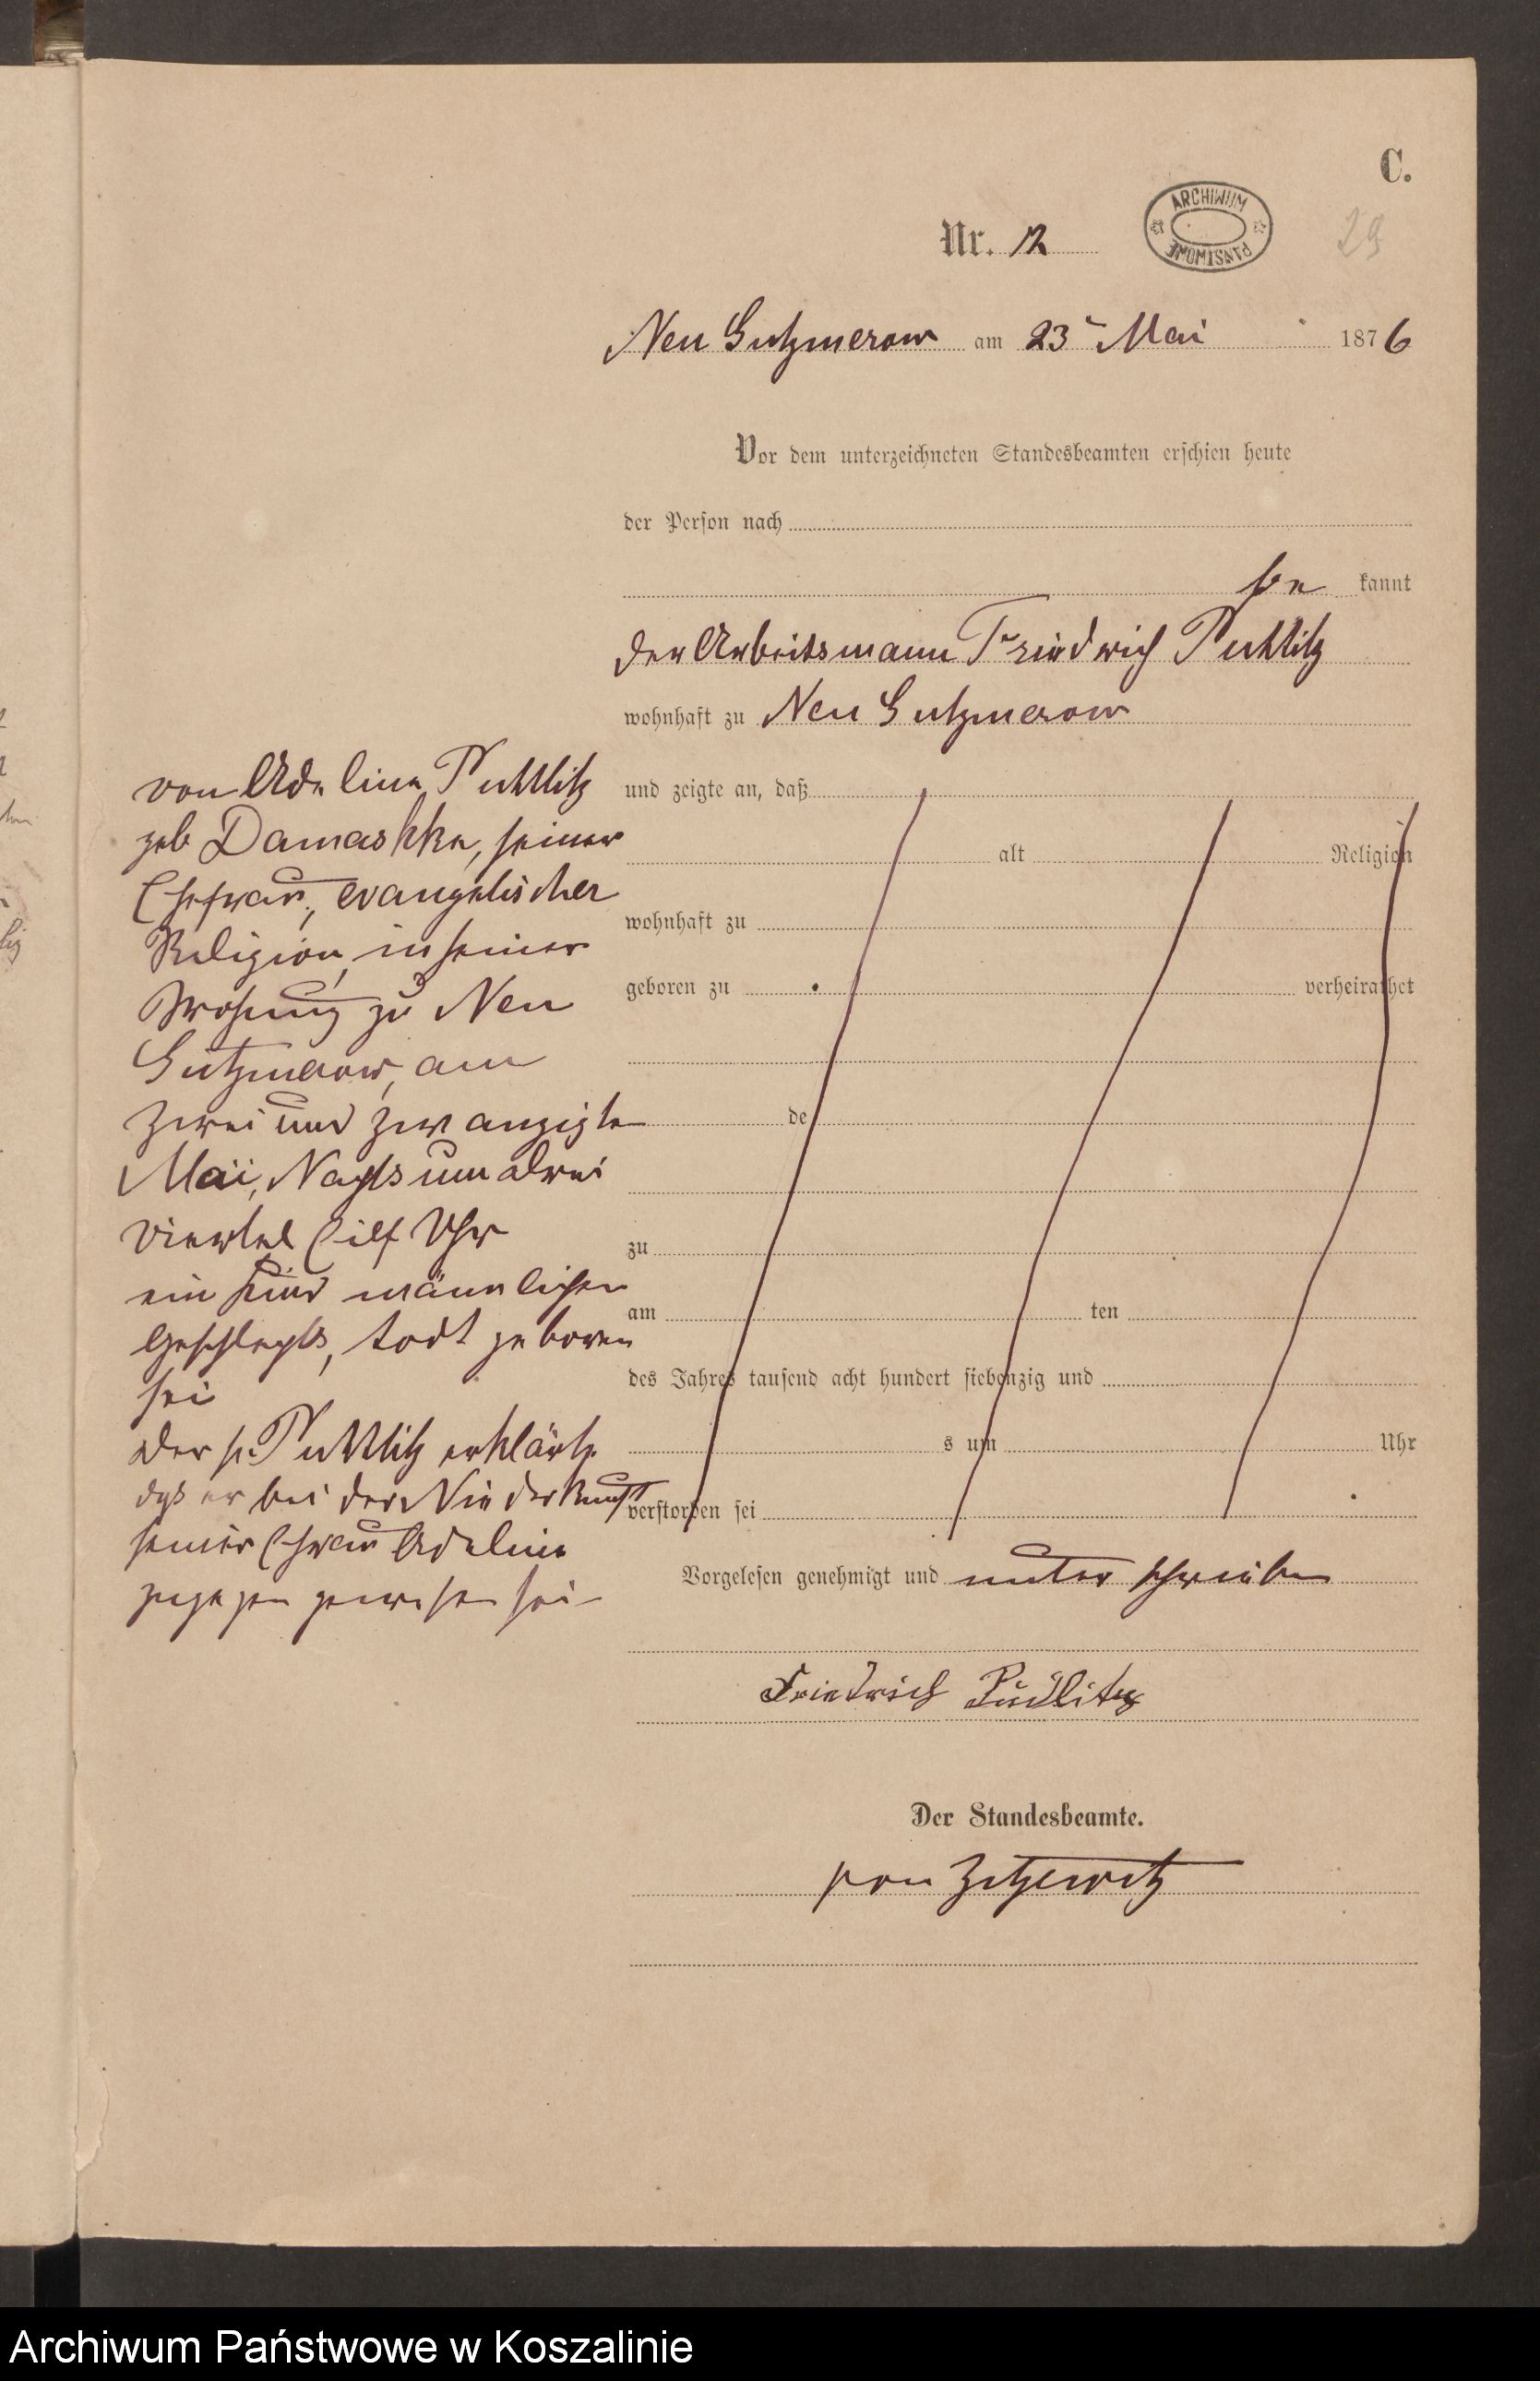 C.
ARCHIWUM PAŃSTWOWE
Nr. 12
29
Neu Gutzmerow am 23t Mai 1876
Vor dem unterzeichneten Standesbeamten erschien heute
der Person nach
be kannt
der Arbeitsmann Friedrich Puttlitz
wohnhaft zu Neu Gutzmerow
und zeigte an, daß
alt Religion
wohnhaft zu
geboren zu verheirathet
de
zu
am ten
des Jahres tausend acht hundert siebenzig und
s um Uhr
verstorben sei
von Adeline Puttlitz
geb Damaskke, seiner
Ehefrau, evangelischer
Religion, in seiner
Wohnung zu Neu
Gutzmerow, am
zwei und zwanzigte
Mai, Nachts um drei
viertel Eilf Uhr
ein Kind männlichen
Geschlechts, todt geboren
sei
der p. Puttlitz erklärte
daß er bei der Niederkunft
seiner Ehefrau Adeline
zugegen gewesen sei
Vorgelesen genehmigt und unterschrieben
Friedrich Püdlitz
Der Standesbeamte.
von Zitzewitz
Archiwum Państwowe w Koszalinie